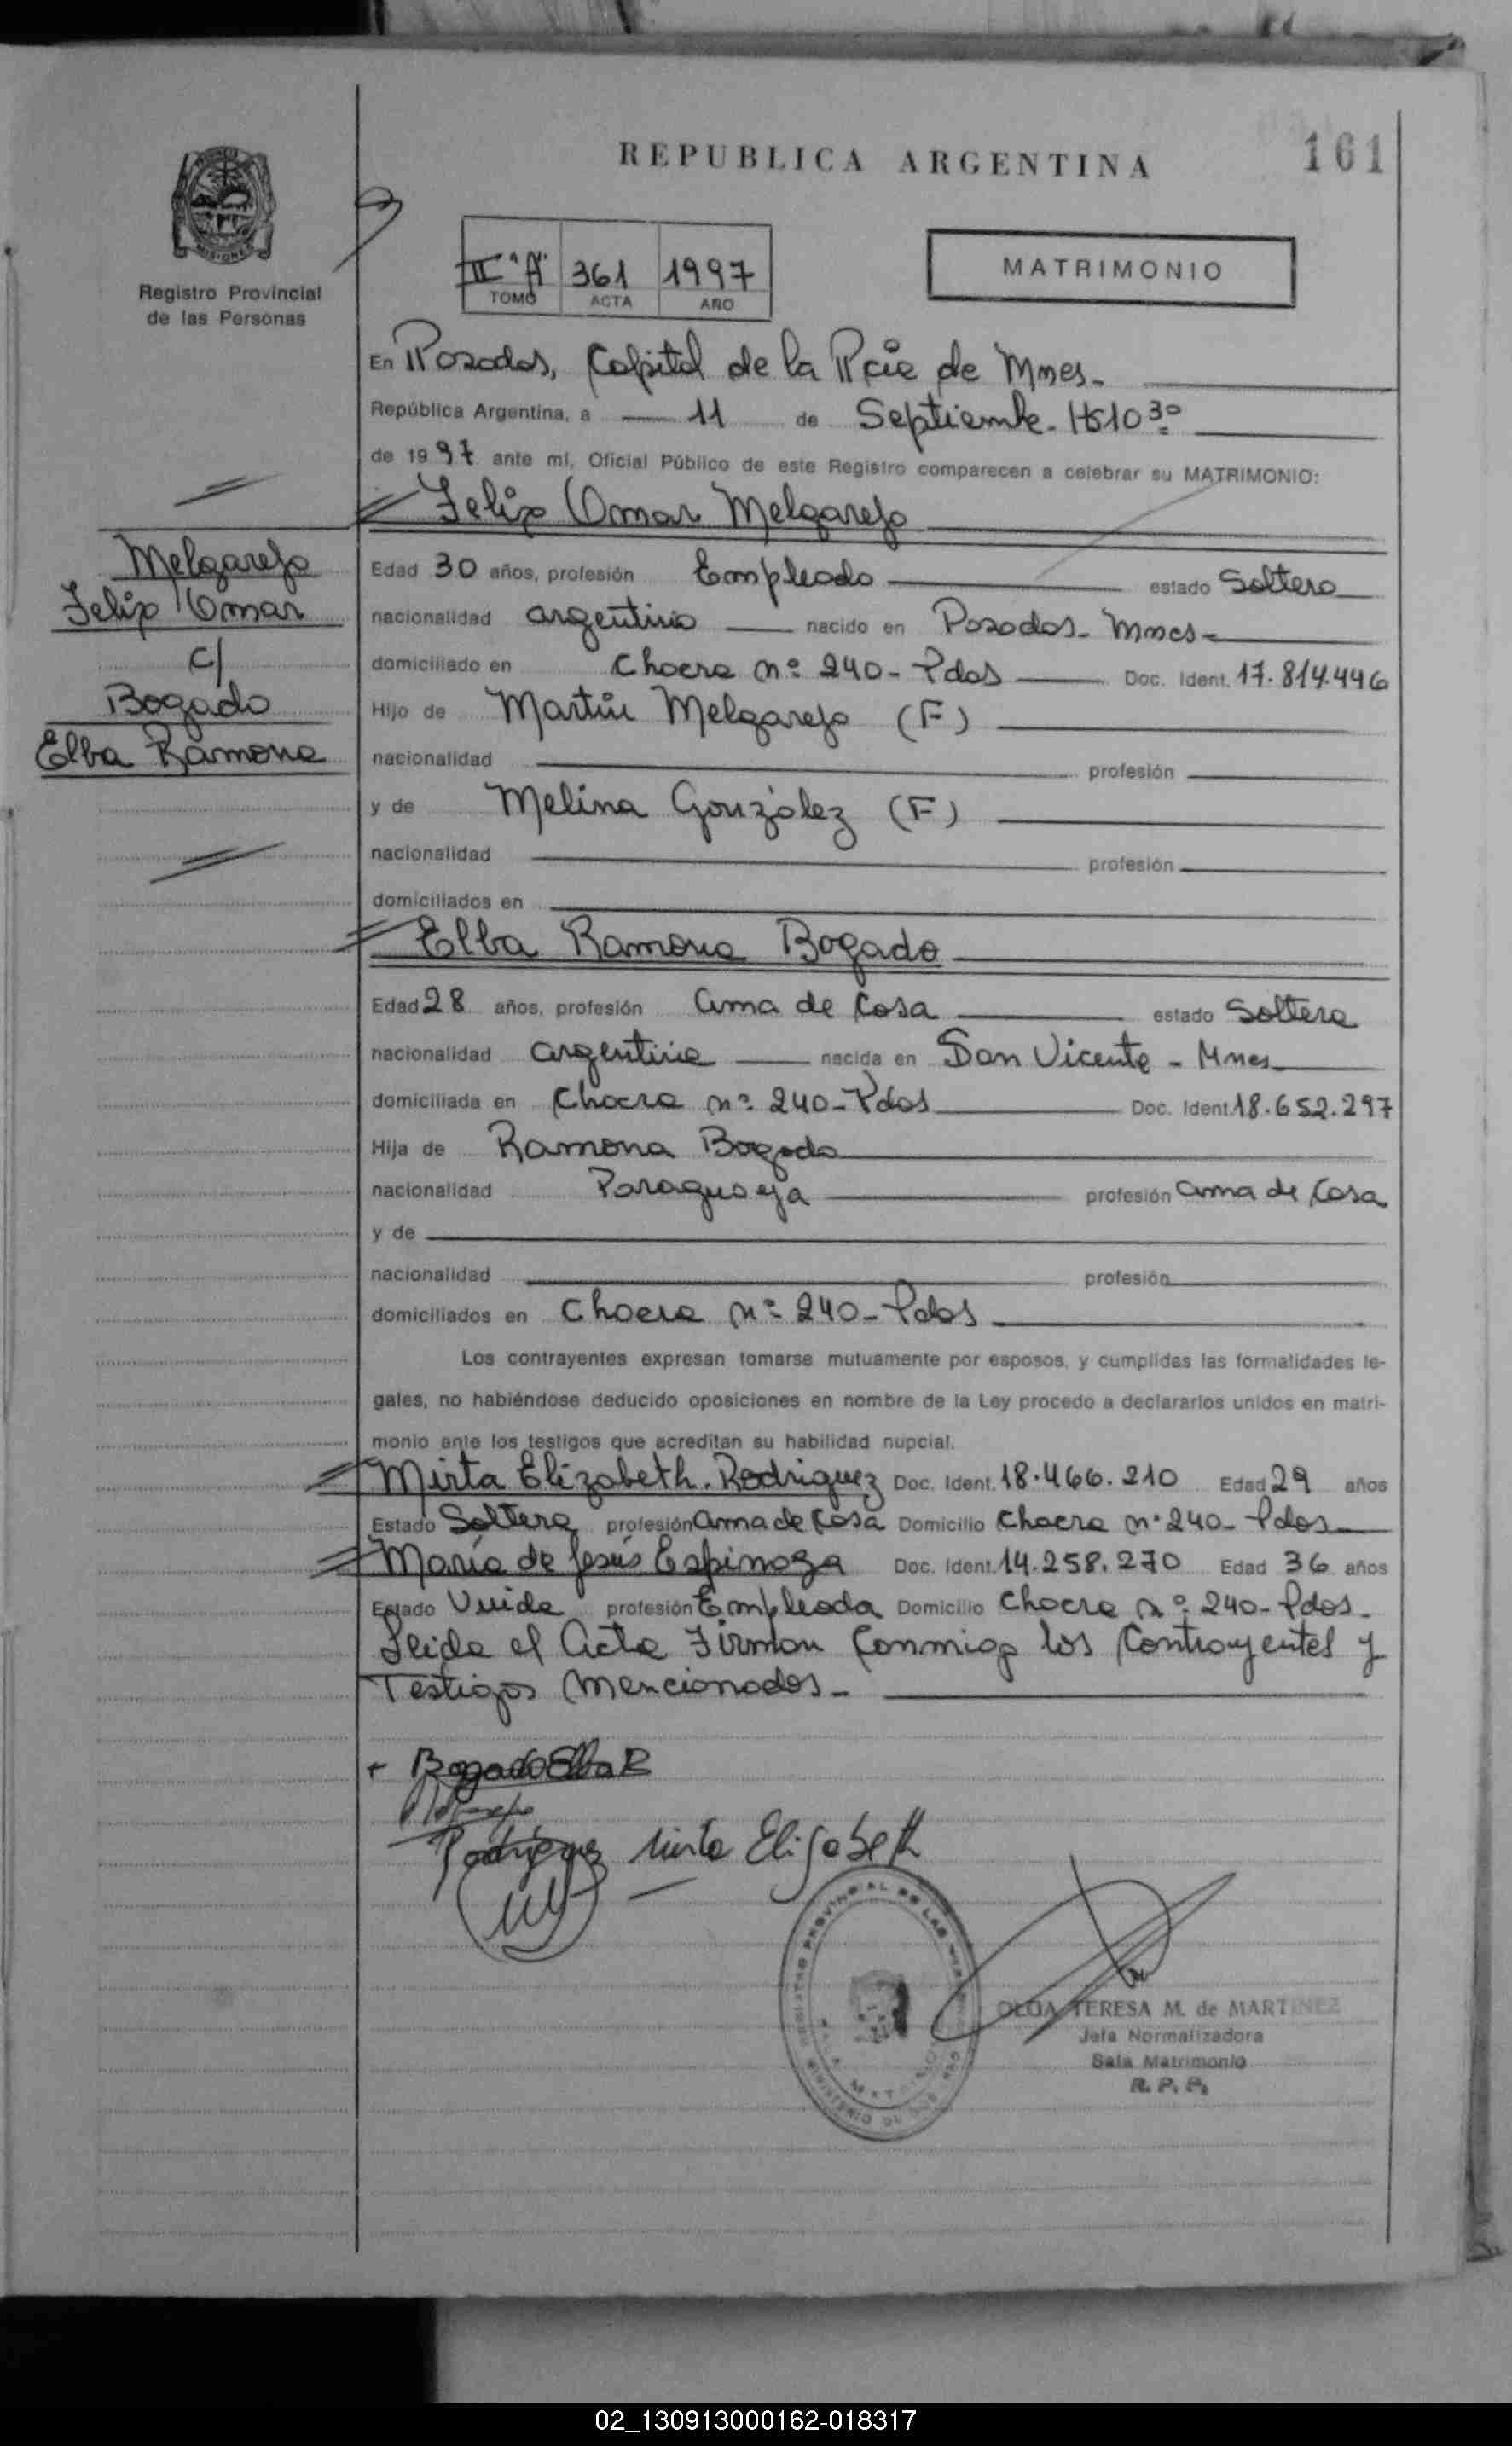 REPUBLICA ARGENTINA
161
MISIONES
Registro Provincial
de las Personas
IIº "A" 361 1997
TOMO ACTA AÑO
MATRIMONIO
En Posadas, Capital de la Pcia de Mnes-
República Argentina, a 11 de Septiembre- Hs 10 30
de 1997 ante mí, Oficial Público de este Registro comparecen a celebrar su MATRIMONIO:
Felix Omar Melgarejo
Edad 30 años, profesión Empleado estado Soltero
nacionalidad argentino nacido en Posadas- Mnes-
domiciliado en Chacra nº 240- Pdas Doc. Ident. 17.814.446
Hijo de Martín Melgarejo (F)
nacionalidad profesión
y de Melina González (F)
nacionalidad profesión
domiciliados en
Melgarejo
Felix Omar
c/
Bogado
Elba Ramona
Elba Ramona Bogado
Edad 28 años, profesión ama de Casa estado Soltera
nacionalidad argentina nacida en San Vicente - Mnes
domiciliada en Chacra nº 240- Pdas Doc. Ident. 18.652.297
Hija de Ramona Bogado
nacionalidad Paraguaya profesión ama de Casa
y de
nacionalidad profesión
domiciliados en Chacra nº 240- Pdas
Los contrayentes expresan tomarse mutuamente por esposos, y cumplidas las formalidades le-
gales, no habiéndose deducido oposiciones en nombre de la Ley procedo a declararlos unidos en matri-
monio ante los testigos que acreditan su habilidad nupcial.
Mirta Elizabeth. Rodriguez Doc. Ident. 18.466.210 Edad 29 años
Estado Soltera profesión ama de Casa Domicilio Chacra nº 240- Pdas
María de Jesús Espinoza Doc. Ident. 14.258.270 Edad 36 años
Estado Viuda profesión Empleada Domicilio Chacra nº 240- Pdas-
Leida el Acta Firman Conmigo los Contrayentes y
Testigos Mencionados-
+ Bogado Elba R
Rodriguez Mirta Elisabeth
OLGA TERESA M. de MARTINEZ
Jefa Normalizadora
Sala Matrimonio
R. P. P.
02_130913000162-018317